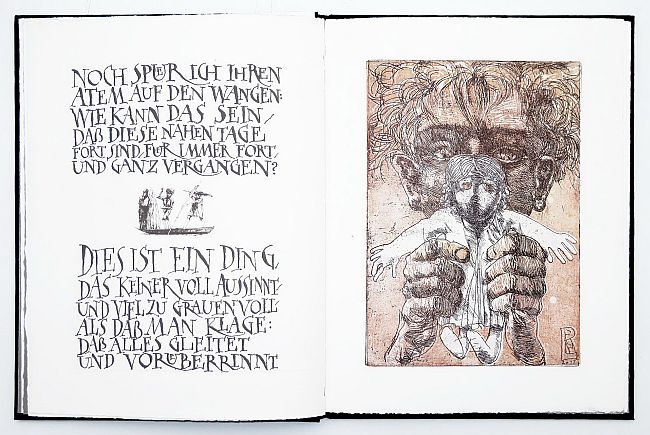 NOCH SPUER ICH IHREN
ATEM AUF DEN WANGEN:
WIE KANN DAS SEIN,
DAß DIESE NAHEN TAGE
FORT SIND, FUER IMMER FORT,
UND GANZ VERGANGEN?
DIES IST EIN DING,
DAS KEINER VOLL AUSSINNT,
UND VIEL ZU GRAUENVOLL,
ALS DAß MAN KLAGE:
DAß ALLES GLEITET
UND VORUEBERRINNT